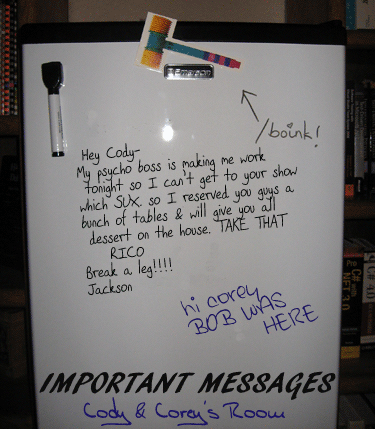 /boink!
Hey Cody-
My psycho boss is making me work
tonight so I can't get to your show
which SUX. so I reserved you guys a
bunch of tables & will give you all
dessert on the house. TAKE THAT
RICO
Break a leg!!!!
Jackson
hi corey
BOB WAS
HERE
IMPORTANT MESSAGES
Cody & Corey's Room